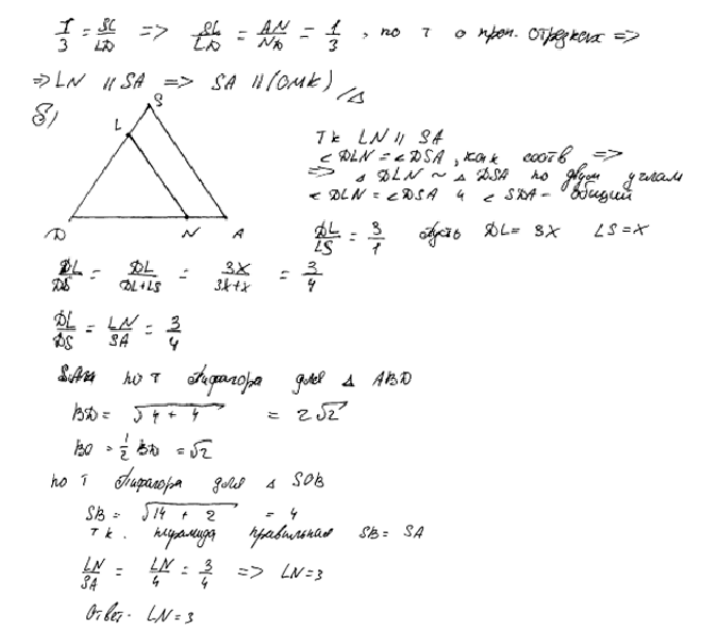 1/3 = SL/LD => SL/LD = AN/ND = 1/3, по т о проп. отрезках =>
=> LN || SA => SA || (OMK)
б)
S
L
D N A
Тк LN || SA
∠DLN = ∠DSA, как соотв =>
=> △DLN ~ △DSA по двум углам
∠DLN = ∠DSA и ∠SDA - общий
DL/LS = 3/1 пусть DL = 3x LS = x
DL/DS = DL/DL+LS = 3x/3x+x = 3/4
DL/DS = LN/SA = 3/4
по т Пифагора для △ ABD
BD = √4 + 4 = 2√2
BO = 1/2 BD = √2
по т Пифагора для △ SOB
SB = √14 + 2 = 4
тк. пирамида правильная SB = SA
LN/SA = LN/4 = 3/4 => LN = 3
Ответ. LN = 3